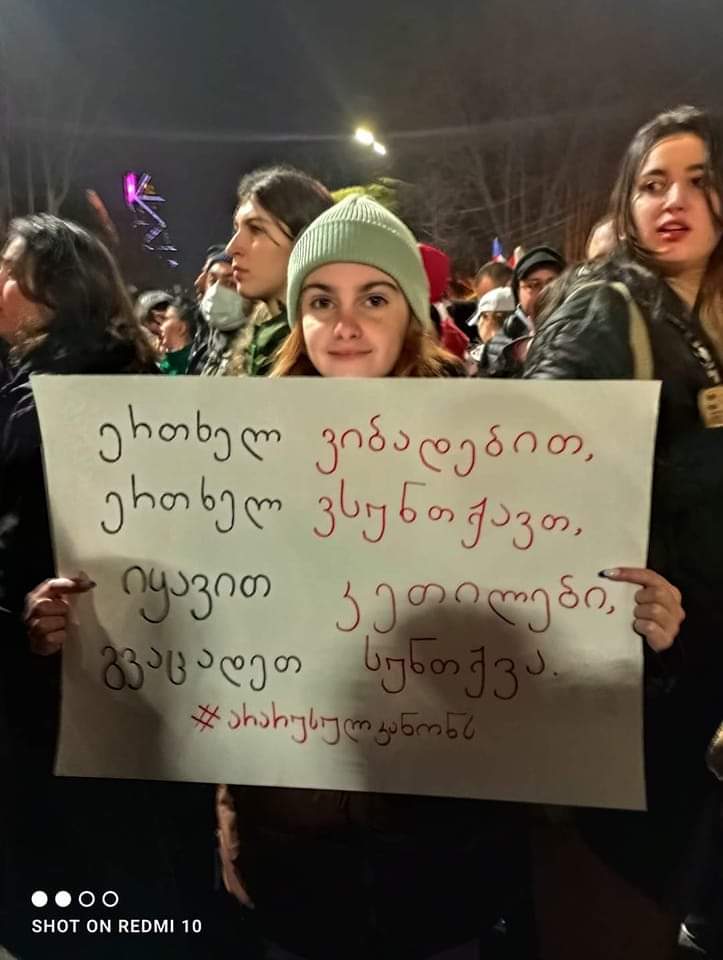 ერთხელ ვიბადებით,
ერთხელ ვსუნთქავთ,
იყავით კეთილები,
გვაცადეთ სუნთქვა.
#არარუსულკანონს
SHOT ON REDMI 10